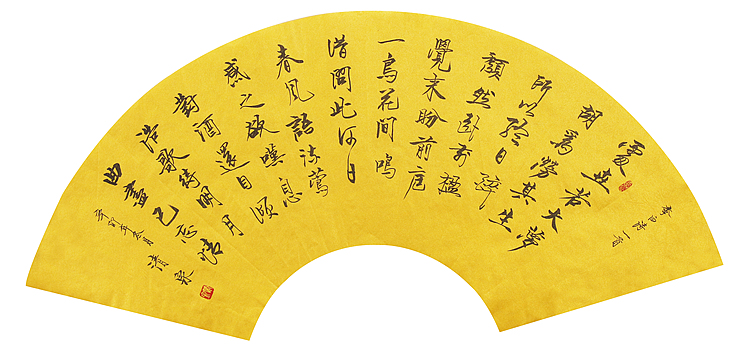 李白詩一首
處世若大夢
胡爲勞其生
所以終日醉
頹然臥前楹
覺來盼前庭
一鳥花間鳴
借問此何日
春风語流鶯
感之欲嘆息
對酒還自傾
浩歌待明月
曲盡已忘情
辛卯年冬月清泉